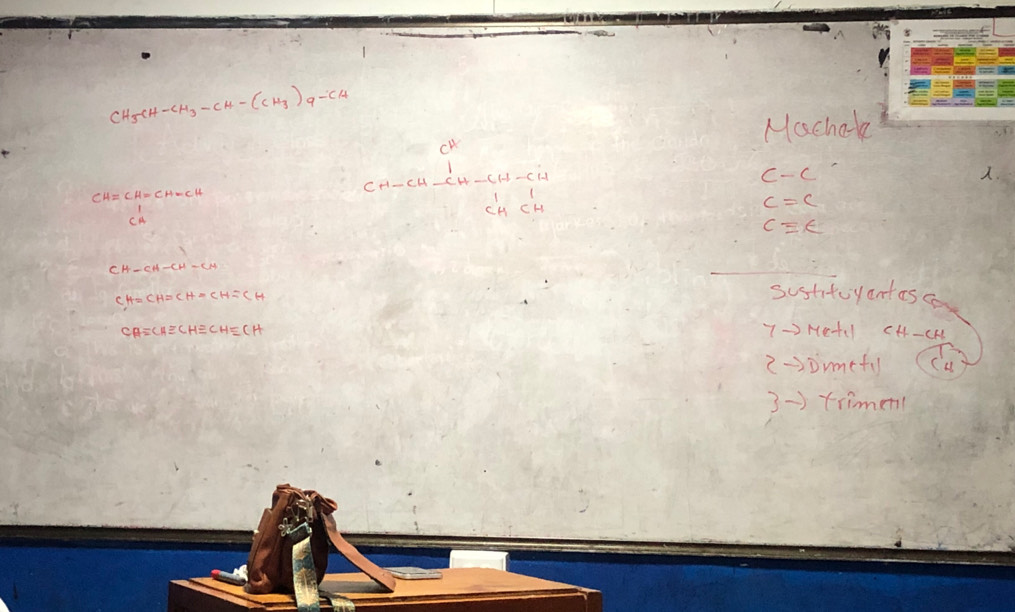 CH3-CH-CH3-CH-(CH3)9-CH
CH=CH=CH=CH
CH
CH
CH-CH-CH-CH-CH
CH CH
CH-CH-CH-CH
CH=CH=CH=CH=CH
CH≡CH≡CH≡CH≡CH
Machete
C-C
C=C
C≡C
Sustituyentes
1→Metil CH-CH
CH
2→Dimetil
3→Trimetil